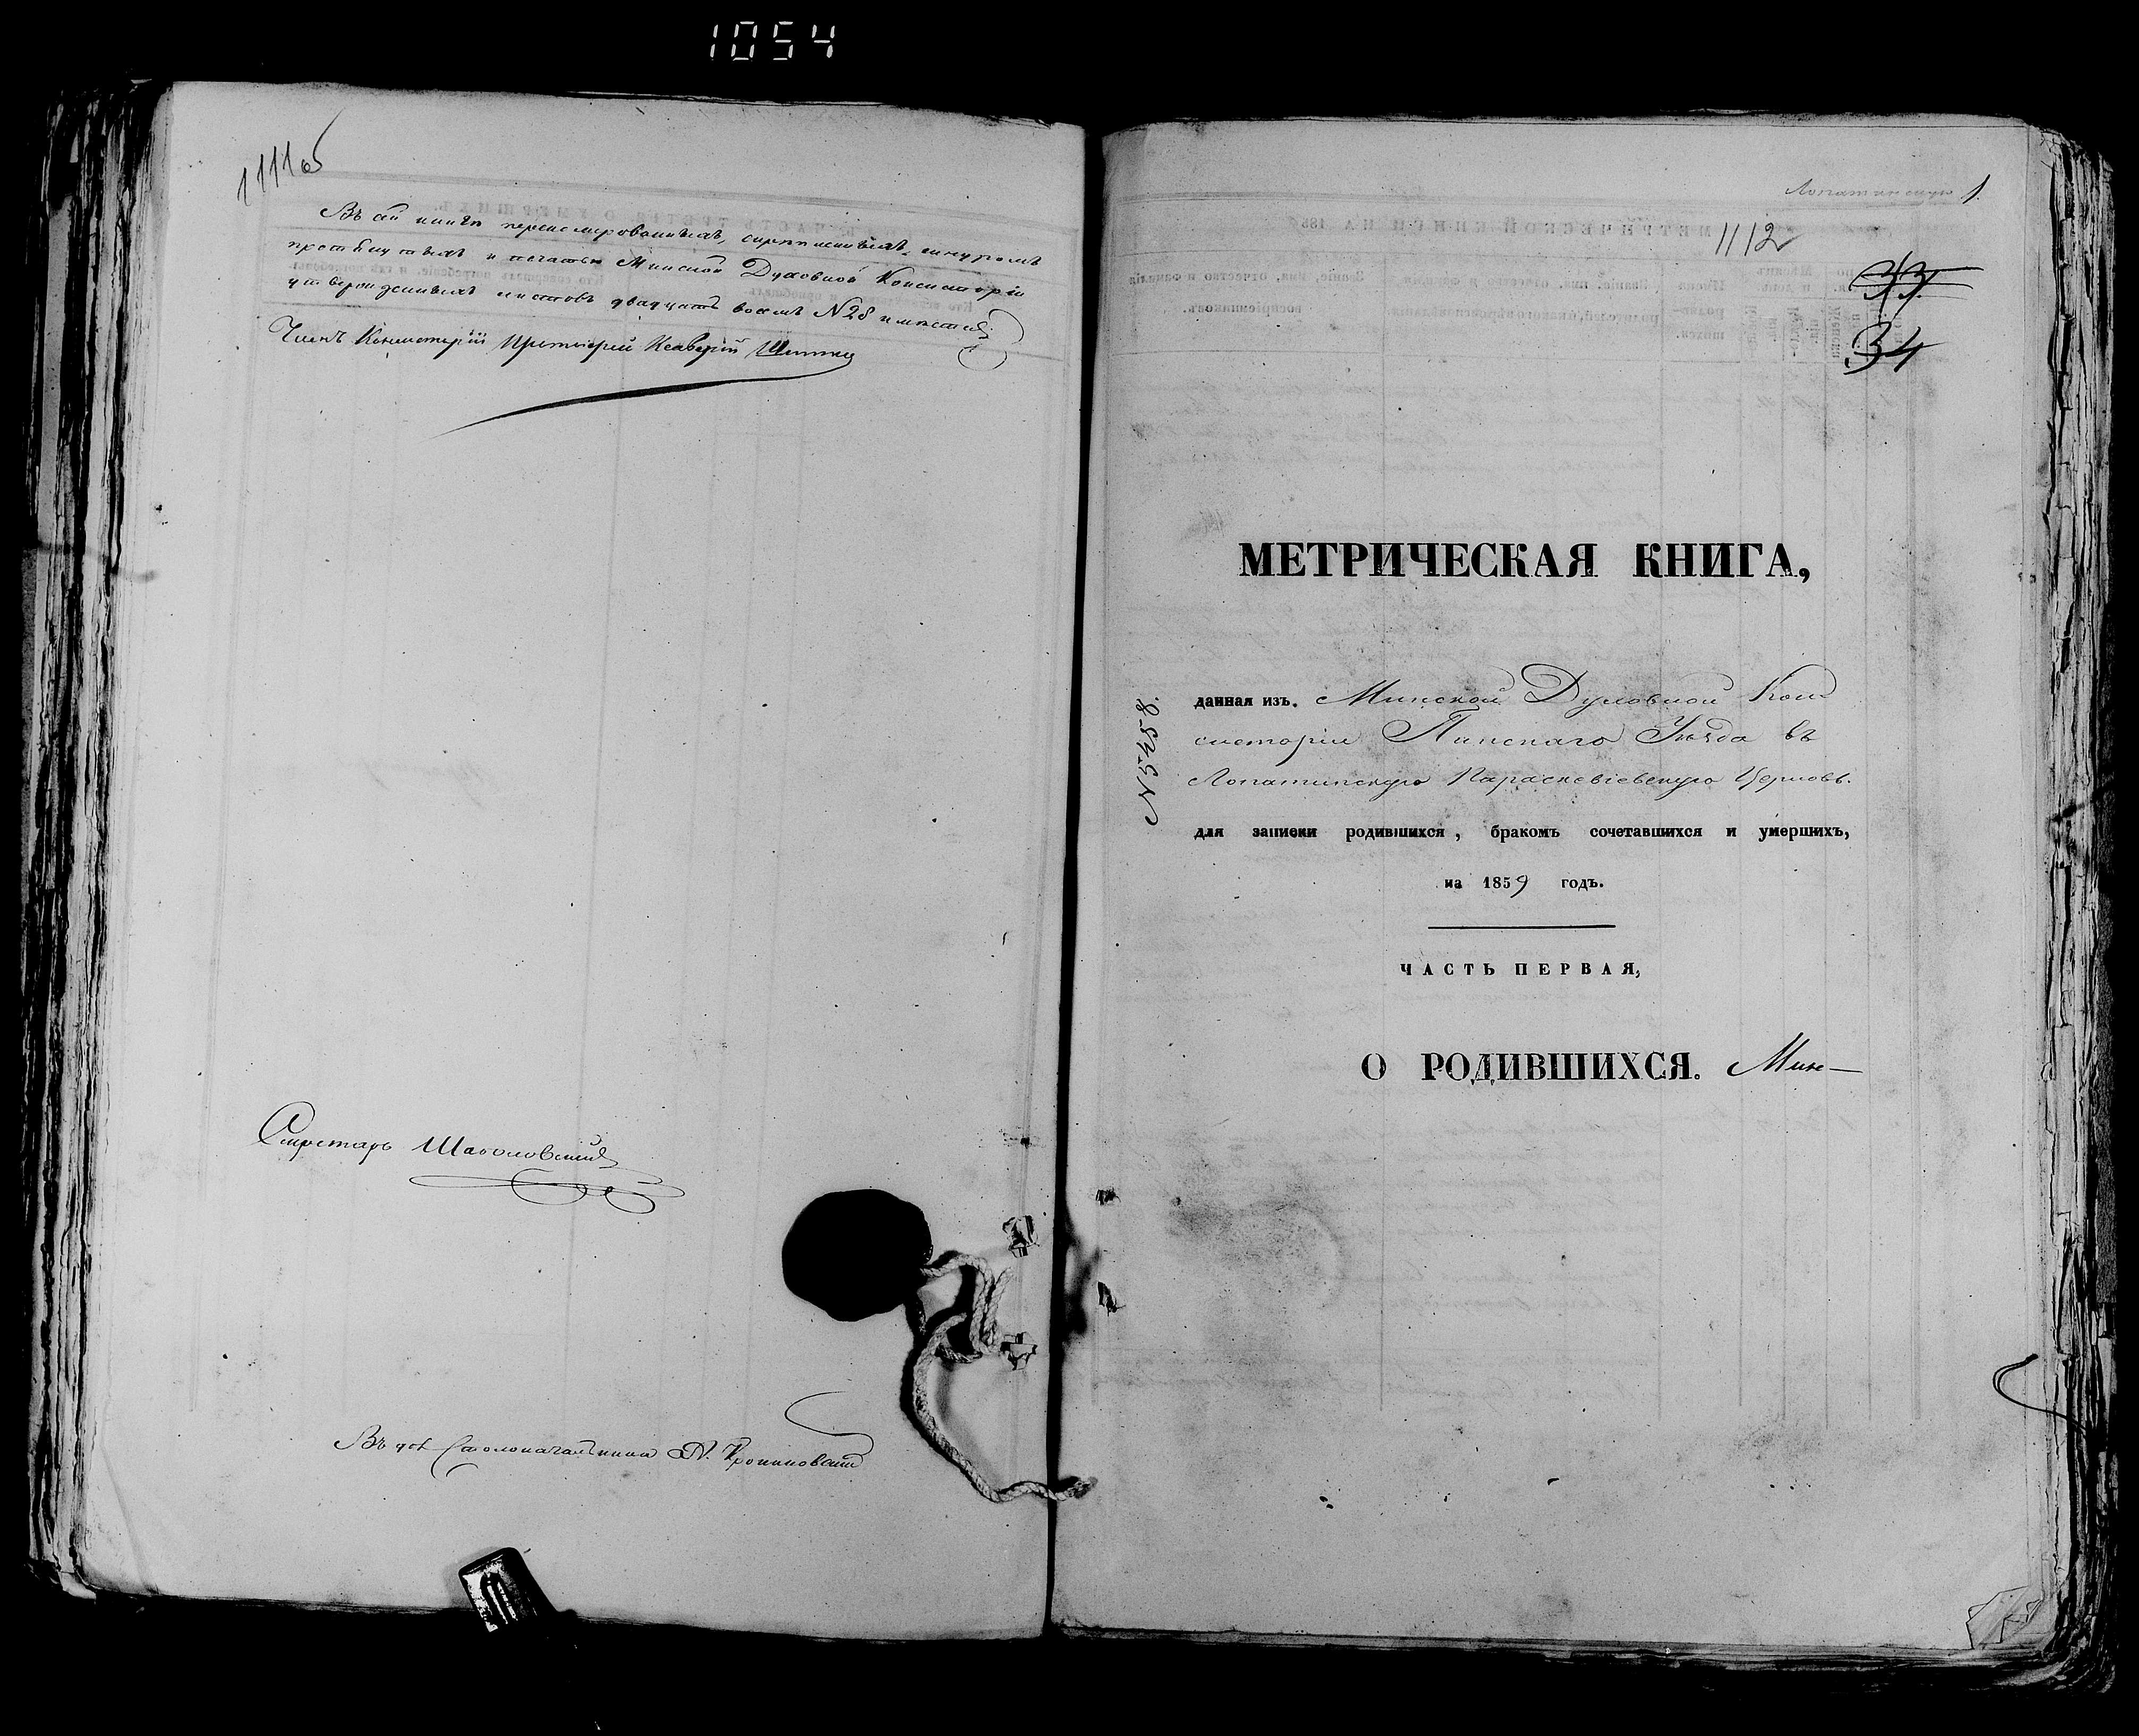 1054
1111 об
Въ сей книгѣ перенумерованныхъ, скрѣпленныхъ, шнуромъ
прошнурованныхъ и печатью Минской Духовной Консисторіи
утвержденныхъ листовъ двадцать восемь №28
Членъ Консисторіи Протоіерей Ксаверій
Секретарь
Въ дол. Столоначальника
Лопатинскую 1.
1112
33
34
МЕТРИЧЕСКАЯ КНИГА,
№5458.
данная изъ Минской Духовной Кон
систоріи Пинскаго Уѣзда въ
Лопатинскую Параскевіевскую Церковь.
для записки родившихся, бракомъ сочетавшихся и умершихъ,
на 1859 годъ.
ЧАСТЬ ПЕРВАЯ,
О РОДИВШИХСЯ. Мин—